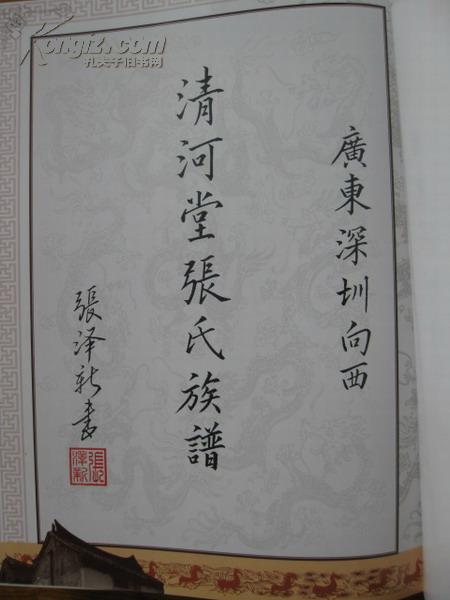 廣東深圳向西
清河堂張氏族譜
張泽新書
張印
澤新
Kongfz.com
孔夫子旧书网